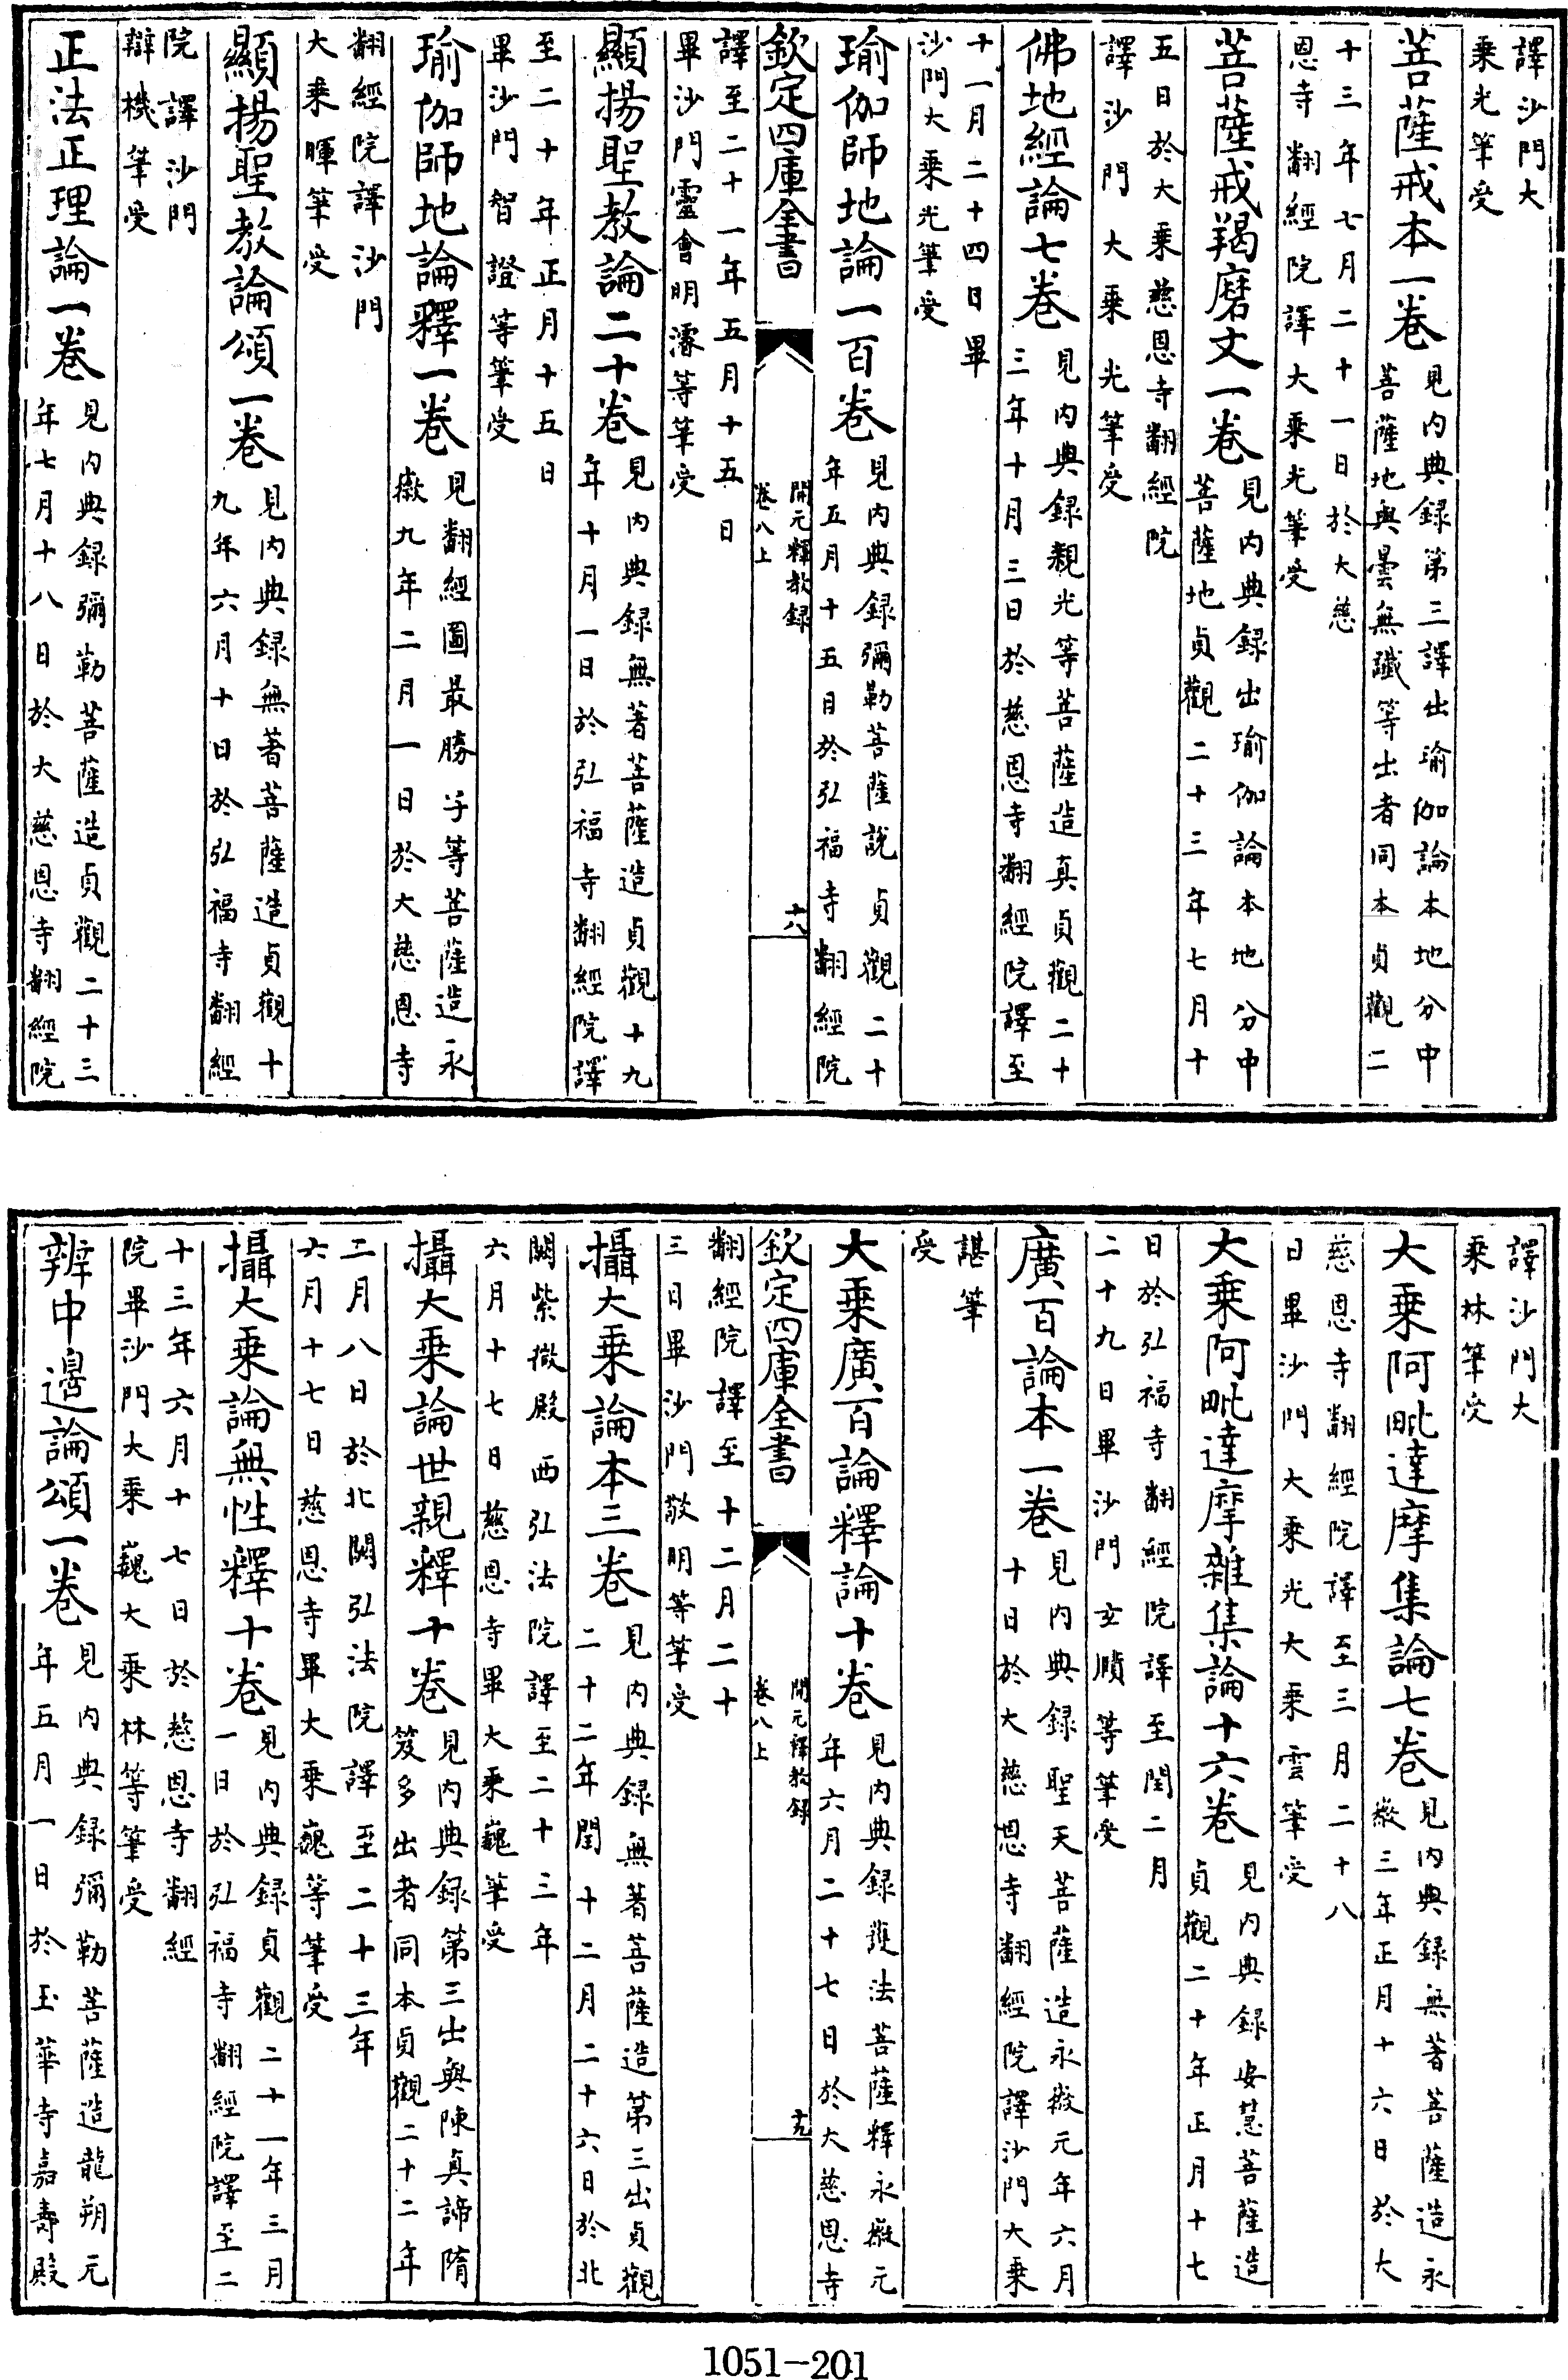 譯沙門大
乗光筆受
菩薩戒本一巻見内典録第三譯出瑜伽論本地分中
菩薩地與曇無䜟等出者同本貞觀二
十三年七月二十一日於大慈
恩寺翻經院譯大乗光筆受
菩薩戒羯磨文一巻見内典録出瑜伽論本地分中
菩薩地貞觀二十三年七月十
五日於大乗慈恩寺翻經院
譯沙門大乗光筆受
佛地經論七巻見内典録親光等菩薩造真貞觀二十
三年十月三日於慈恩寺翻經院譯至
十一月二十四日畢
沙門大乗光筆受
瑜伽師地論一百巻見内典録彌勒菩薩說貞觀二十
年五月十五日於弘福寺翻經院
欽定四庫全書
開元釋教録
卷八上
十八
譯至二十一年五月十五日
畢沙門靈會明濬等筆受
顯揚聖教論二十巻見内典録無著菩薩造貞觀十九
年十月一日於弘福寺翻經院譯
至二十年正月十五日
畢沙門智證等筆受
瑜伽師地論釋一巻見翻經圖最勝子等菩薩造永
徽九年二月一日於大慈恩寺
翻經院譯沙門
大乗暉筆受
顯揚聖教論頌一巻見内典録無著菩薩造貞觀十
九年六月十日於弘福寺翻經
院譯沙門
辯機筆受
正法正理論一巻見内典録彌勒菩薩造貞觀二十三
年七月十八日於大慈恩寺翻經院
譯沙門大
乗林筆受
大乗阿毗達摩集論七巻見内典録無著菩薩造永
徽三年正月十六日於大
慈恩寺翻經院譯至三月二十八
日畢沙門大乗光大乗雲筆受
大乗阿毗達摩雜集論十六巻見内典録安慧菩薩造
貞觀二十年正月十七
日於弘福寺翻經院譯至閏二月
二十九日畢沙門玄賾等筆受
廣百論本一巻見内典録聖天菩薩造永徽元年六月
十日於大慈恩寺翻經院譯沙門大乗
諶筆
受
大乗廣百論釋論十巻見内典録護法菩薩釋永徽元
年六月二十七日於大慈恩寺
欽定四庫全書
開元釋教録
卷八上
十九
翻經院譯至十二月二十
三日畢沙門敬明等筆受
攝大乗論本三巻見内典録無著菩薩造第三出貞觀
二十二年閏十二月二十六日於北
闕紫微殿西弘法院譯至二十三年
六月十七日慈恩寺畢大乗巍筆受
攝大乗論世親釋十巻見内典録第三出與陳真諦隋
笈多出者同本貞觀二十二年
二月八日於北闕弘法院譯至二十三年
六月十七日慈恩寺畢大乗巍等筆受
攝大乗論無性釋十巻見内典録貞觀二十一年三月
一日於弘福寺翻經院譯至二
十三年六月十七日於慈恩寺翻經
院畢沙門大乗巍大乗林等筆受
辨中邊論頌一巻見内典録彌勒菩薩造龍朔元
年五月一日於玉華寺嘉壽殿
1051-201